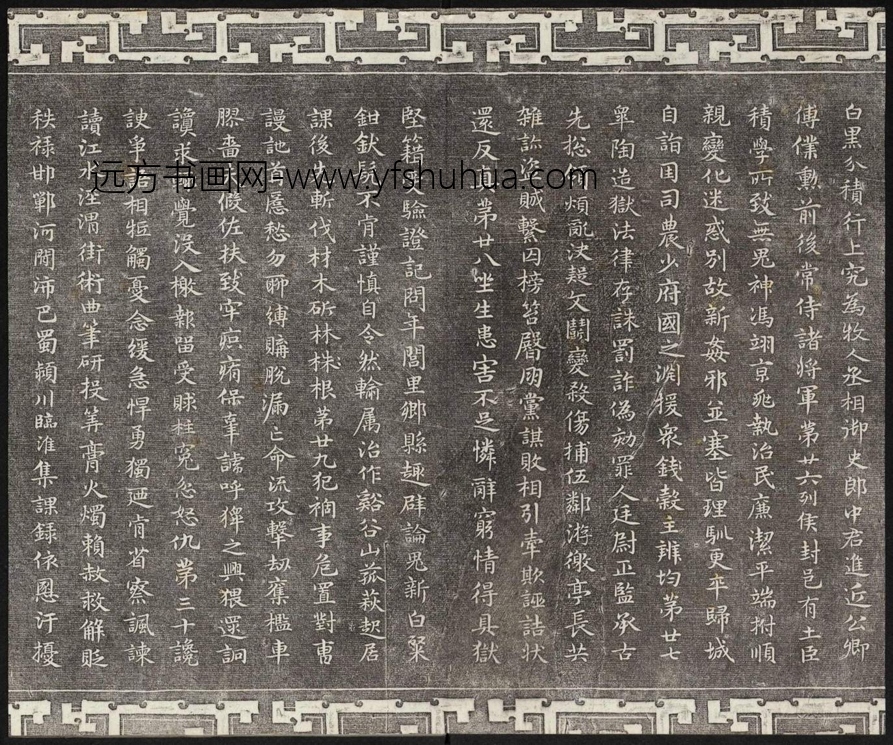 白黑分積行上究為牧人丞相御史郎中君進近公卿
傅僕勳前後常侍諸將軍第廿六列侯封邑有土臣
積學所致無鬼神馮翊京兆執治民廉潔平端拊順
親變化迷惑別故新姦邪並塞皆理馴更卒歸城
自詣因司農少府國之淵援眾錢穀主辨均第廿七
皋陶造獄法律存誅罰詐偽劾罪人廷尉正監承古
先揔領煩亂決疑文鬭變殺傷捕伍鄰游徼亭長共
雜訟盜賊繫囚榜笞臀朋黨謀敗相引牽欺誣詰狀
還反真第廿八坐生患害不足憐辭窮情得具獄
堅籍受驗證記問年閭里鄉縣趣辟論鬼新白粲
鉗釱髡不肯謹慎自令然輸属治作谿谷山菰萩起居
課後先斬伐材木斫林株根第廿九犯禍事危置對曹
謾訑首匿愁勿聊縛購脫漏亡命流攻擊劫奪檻車
膠嗇夫假佐扶致牢疻痏保辜謕呼獋之興猥還詗
讂求輒覺沒入檄報留受賕枉冤忿怒仇第三十讒
諛爭語相牴觸憂念緩急悍勇獨迺肯省察諷諫
讀江水涇渭街術曲筆研投筭膏火燭賴赦救解貶
秩祿邯鄲河間沛巴蜀潁川臨淮集課錄依恩汙擾
远方书画网-www.yfshuhua.com